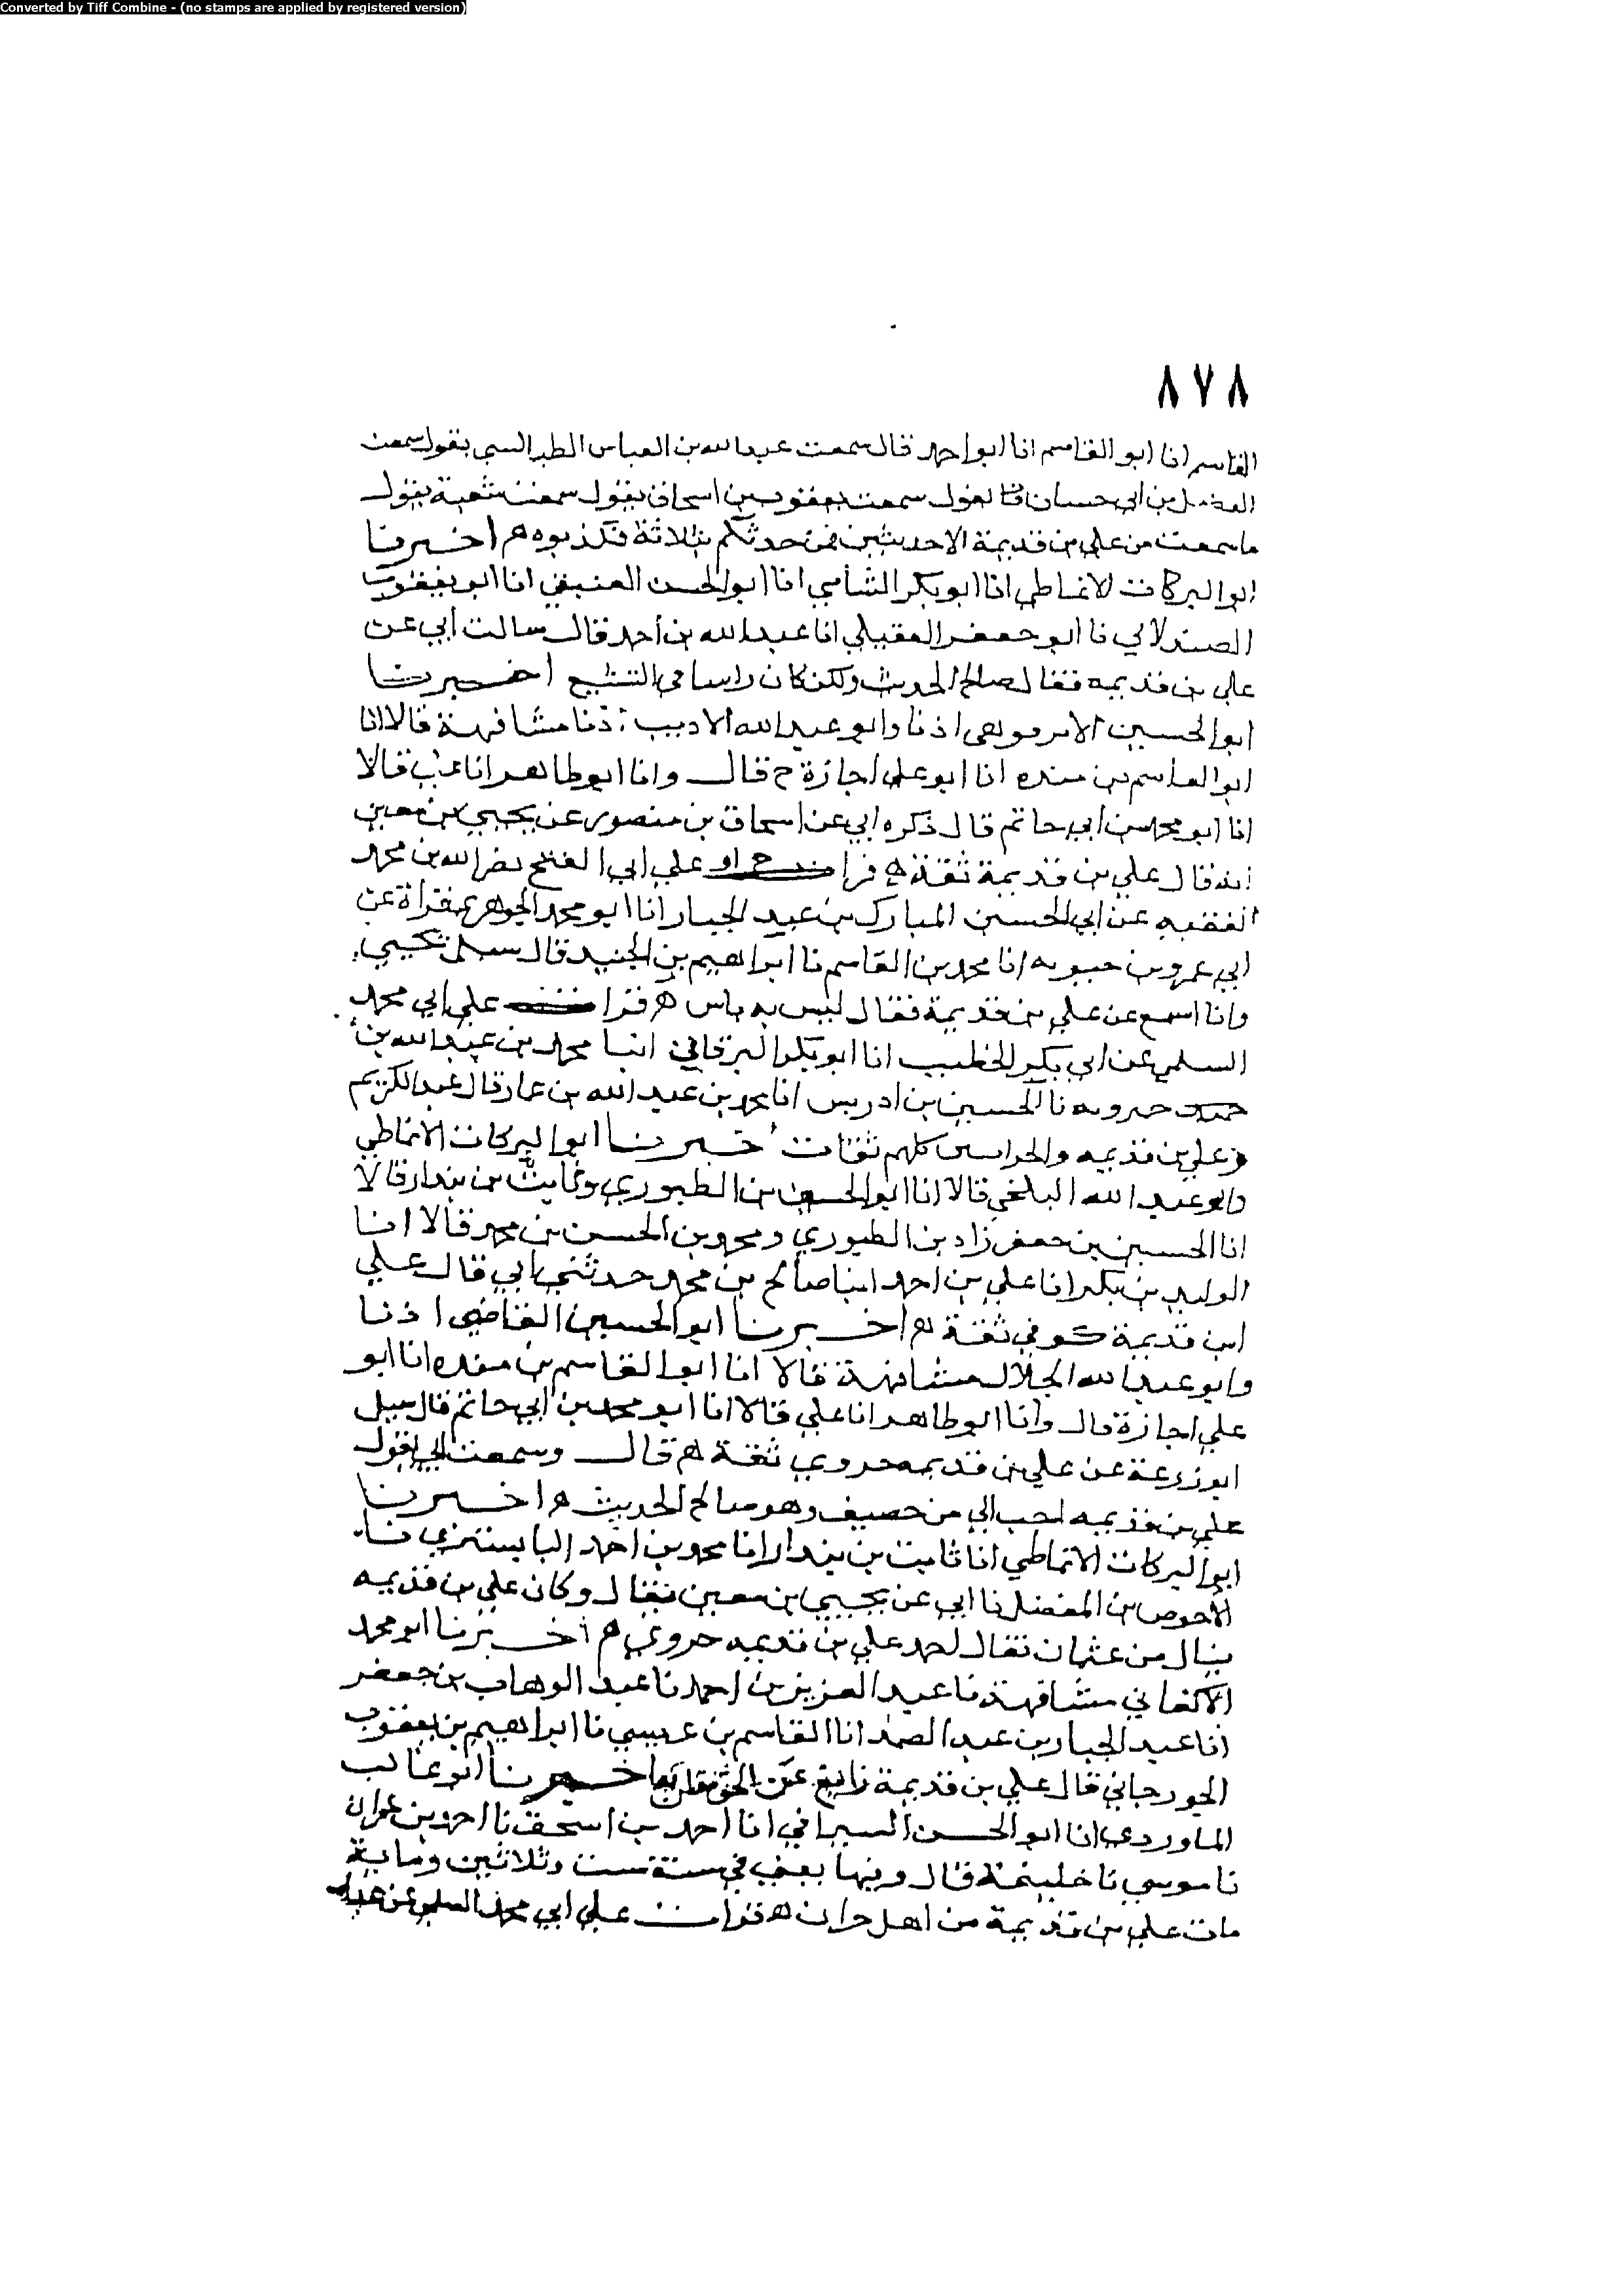 Converted by Tiff Combine - (no stamps are applied by registered version)
٨٧٨
القاسم انا ابو القاسم انا ابو احمد قال سمعت عبدالله بن العباس الطيالسي يقول سمعت
الفضل بن ابي حسان يقول سمعت يعقوب بن اسحاق يقول سمعت شعبة يقول
ما سمعت من علي بن قديمة الا حديثين فمن حدثكم بثلاثة فكذبوه ه اخبرنا
ابو البركات الانماطي انا ابو بكر الشامي انا ابو الحسن العتيقي انا ابو يعقوب
الصيدلاني نا ابو جعفر العقيلي انا عبدالله بن احمد قال سالت ابي عن
علي بن قديمه فقال صالح الحديث ولكن كان راسا في التشيع اخبرنا
ابو الحسين الابرقوهي اذنا وابو عبدالله الاديب اذنا مشافهة قالا انا
ابو القاسم بن منده انا ابو علي اجازة ح قال وانا ابو طاهر انا علي قالا
انا ابو محمد بن ابي حاتم قال ذكره ابي عن اسحاق بن منصور عن يحيى بن معين
انه قال علي بن قديمة ثقة ه قرا علي ابي الفتح نصر الله بن محمد
الفقيه عن ابي الحسين المبارك بن عبد الجبار انا ابو محمد الجوهري قراة عن
ابي عمر بن حيويه انا محمد بن القاسم نا ابراهيم بن الجنيد قال سئل يحيى
وانا اسمع عن علي بن قديمة فقال ليس به باس ه قرا علي ابي محمد
السلمي عن ابي بكر الخطيب انا ابو بكر البرقاني انبا محمد بن عبدالله بن
خميرويه نا الحسين بن ادريس انا محمد بن عبد الله بن عمار قال عبد الكريم
وعلي بن قديمه والخراسين كلهم ثقات اخبرنا ابو البركات الانماطي
وابو عبد الله البلخي قالا انا ابو الحسين بن الطيوري وثابت بن بندار قالا
انا الحسين بن جعفر زاد بن الطيوري ومحمد بن الحسن بن محمد قالا انا
الوليد بن بكر انا علي بن احمد انبا صالح بن محمد حدثني ابي قال علي
ابن قديمة كوفي ثقة ه اخبرنا ابو الحسين القاضي اذنا
وابو عبدالله الخلال مشافهة قالا انا ابو القاسم بن منده انا ابو
علي اجازة قال وانا ابو طاهر انا علي قالا انا ابو محمد بن ابي حاتم قال سيل
ابو زرعة عن علي بن قديمه حروي ثقة ه قال وسمعت ابي يقول
علي بن قديمه احب الي من خصيف وهو صالح الحديث ه اخبرنا
ابو البركات الانماطي انا ثابت بن بندار انا محمد بن احمد البابسيري نا
الاحوص بن المفضل نا ابي عن يحيى بن معين فقال وكان علي بن قديمه
ينال من عثمان فقال احمد علي بن قديمه حروي ه اخبرنا ابو محمد
الاكفاني مشافهة نا عبد العزيز بن احمد نا عبد الوهاب بن جعفر
انا عبد الجبار بن عبد الصمد انا القاسم بن عيسى نا ابراهيم بن يعقوب
الجورجاني قال علي بن قديمة زايغ عن الحق اخبرنا ابو غالب
الماوردي انا ابو الحسن السيرافي انا احمد بن اسحق نا احمد بن عمران
نا موسى نا خليفة قال وفيها يعني في سنة ست وثلاثين وماية
مات علي بن قديمة من اهل حران ه قرات علي ابي محمد السلمي عن